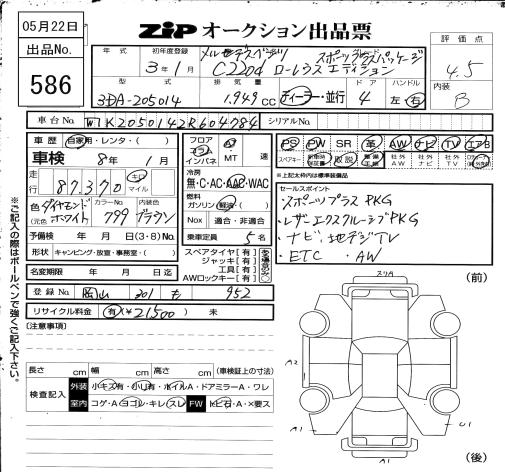 05月22日
ZIP オークション出品票
出品No.
586
評価点
4.5
内装
B
年式 初年度登録
3年1月
メルセデスベンツ スポーツプラスパッケージ
C220d ローレウスエディション
型式 排気量 ドア ハンドル
3DA-205014 1,949cc ディーラー・並行 4 左・右
車台No. W1K2050142R604784 シリアルNo.
車歴 自家用・レンタ・( )
車検 8年 1月
走行 87,370 キロ マイル
色 ダイヤモンドホワイト カラーNo. 799 内装色 ブラウン
(元色 )
予備検 年 月 日(3・8)No.
形状 キャンピング・放宣・事務室・( )
名変期限 年 月 日迄
フロア コラム インパネ AT MT 速
冷房
無・C・AC・AAC・WAC
燃料
ガソリン・軽油・( )
Nox 適合・非適合
乗車定員 5名
スペアタイヤ[有]
ジャッキ[有]
工具[有]
AWロックキー[有]
PS PW SR 革 AW ナビ TV エアB
スペアキー 取説 社外AW 社外ナビ 社外TV
※上記太わく内は標準装備品
セールスポイント
スポーツプラスPKG
・レザーエクスクルーシブPKG
・ナビ、地デジTV
・ETC ・AW
登録No. 岡山 301 も 952
リサイクル料金 有(¥21500) 未
[注意事項]
長さ cm 幅 cm 高さ cm (車検証上の寸法)
検査記入 外装 小キズ有・小凹有・ホイルA・ドアミラーA・ワレ
室内 コゲ・A・ヨゴレ・キレ・スレ FW トビ石・A・×要ス
※ご記入の際はボールペンで強くご記入下さい。
(前)
スリA
A2
A1
U1
(後)